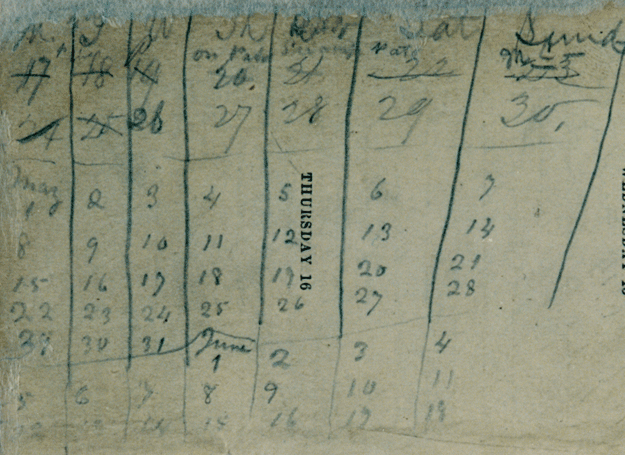 M. T W Th Sat
on
17 18 19 20 21 22 23
24 25 26 27 28 29 30.
May
1 2 3 4 5 6 7
8 9 10 11 12 13 14
15 16 17 18 19 20 21
22 23 24 25 26 27 28
29 30 31 June 1 2 3 4
5 6 7 8 9 10 11
16 17 18
THURSDAY 16